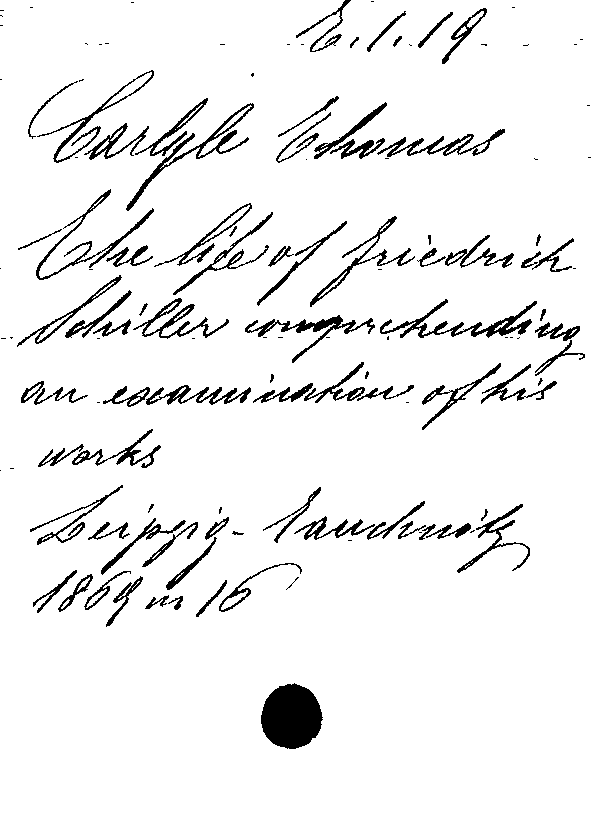 E.1.19
Carlyle Thomas
The life of Friedrich
Schiller comprehending
an examination of his
works
Leipzig - Tauchnitz
1869 in 16